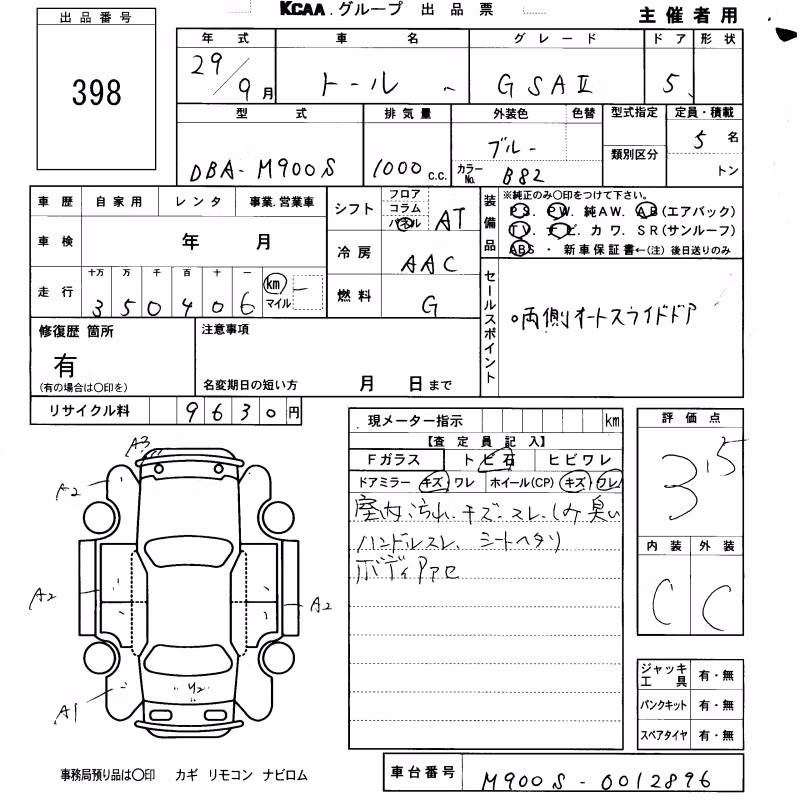 KCAA.グループ 出品票
主催者用
出品番号
398
年式 車名 グレード ドア 形状
29/9月 トール GSAⅡ 5
型式 排気量 外装色 色替 型式指定 定員・積載
DBA-M900S 1000c.c. ブルー 5名
カラーNo. B82 類別区分 トン
車歴 自家用 レンタ 事業.営業車
車検 年 月
走行 十万 万 千 百 十 一
350406 km マイル
シフト フロア コラム パネル AT
冷房 AAC
燃料 G
装備品
※純正のみ○印をつけて下さい。
PS. PW. 純AW. AB(エアバック)
TV. ナビ. カワ. SR(サンルーフ)
ABS ・ 新車保証書←(注) 後日送りのみ
セールスポイント
○両側オートスライドドア
修復歴 箇所
有
(有の場合は○印を)
注意事項
名変期日の短い方 月 日まで
リサイクル料 9630円
現メーター指示 km
【査定員記入】
Fガラス トビ石 ヒビワレ
ドアミラー キズ ワレ ホイール(CP) キズ ワレ
室内汚れ.キズ.スレ.しみ臭い
ハンドルスレ、シートヘタリ
ボディアセ
評価点
3.5
内装 外装
C C
A3
A2
A2
A2
A1
U2
ジャッキ工具 有・無
パンクキット 有・無
スペアタイヤ 有・無
事務局預り品は○印 カギ リモコン ナビロム
車台番号 M900S-0012896